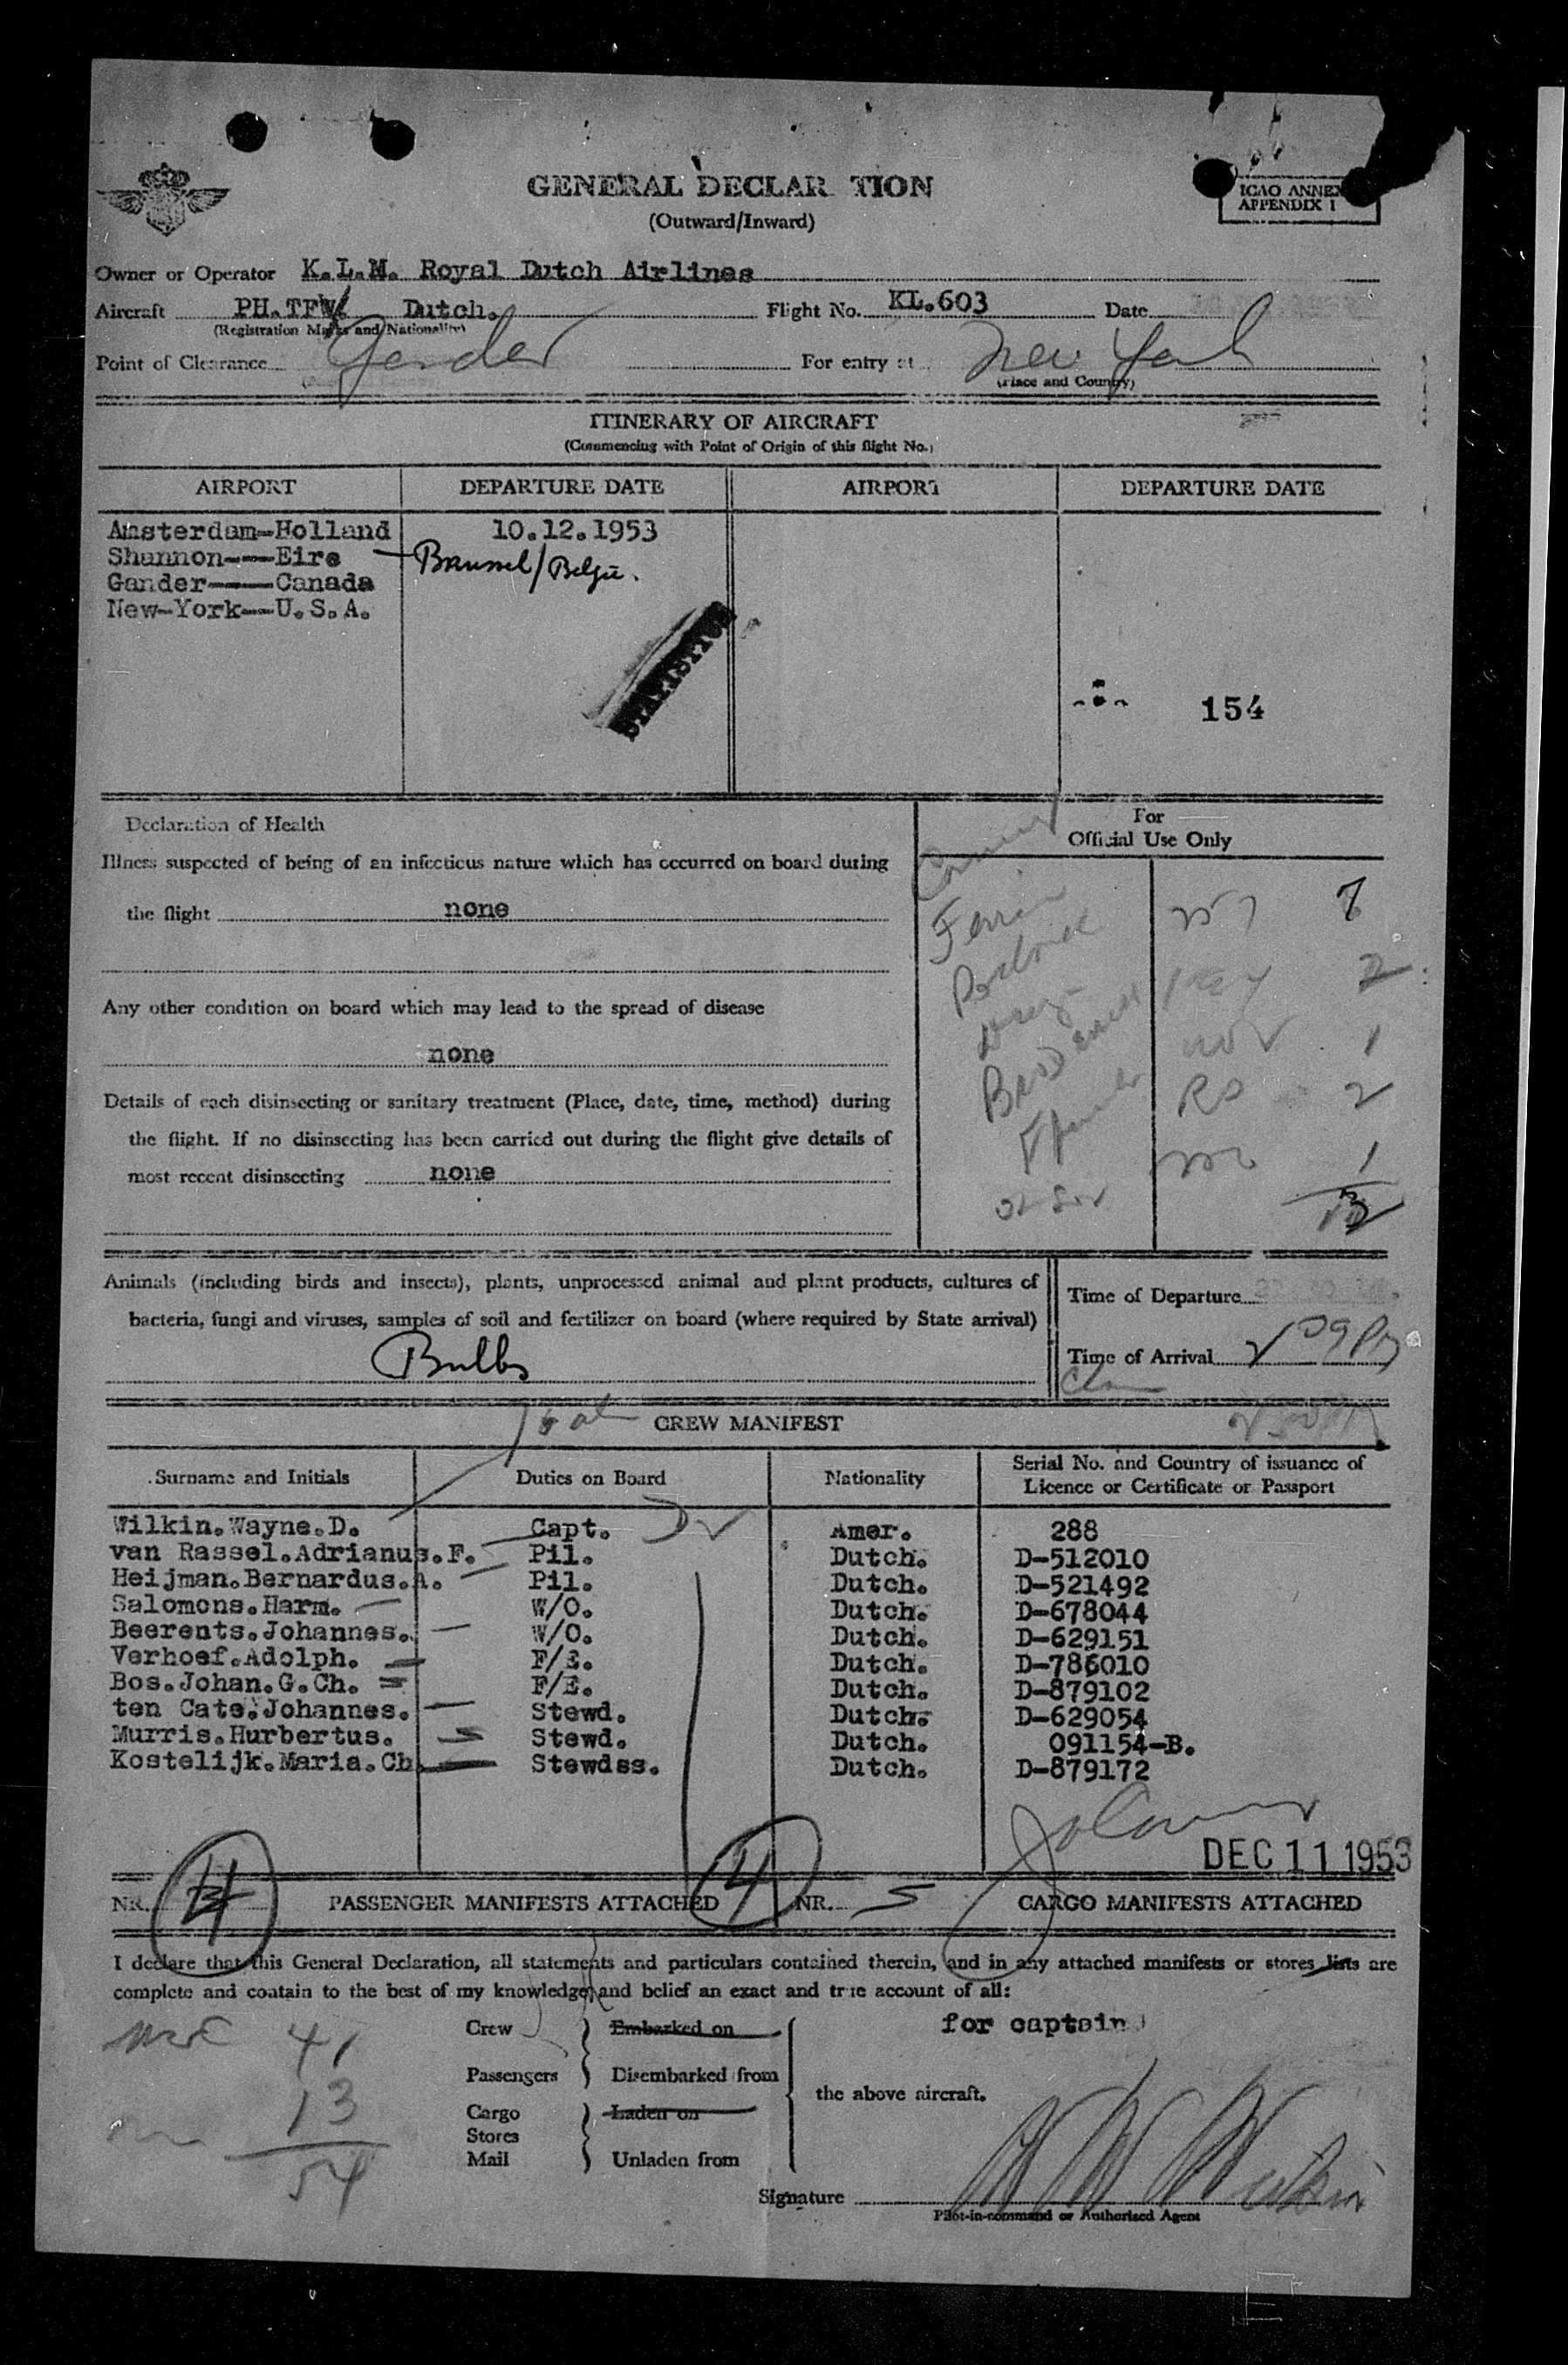 GENERAL DECLAR TION
(Outward/Inward)
ICAO ANNEX
APPENDIX 1
Owner or Operator K.L.M. Royal Dutch Airlines
Aircraft PH.TFW. Dutch. Flight No. KL.603 Date
(Registration Marks and Nationality)
Point of Clearance Gander For entry at New York
(Place and Country)
ITINERARY OF AIRCRAFT
(Commencing with Point of Origin of this flight No.)
AIRPORT DEPARTURE DATE AIRPORT DEPARTURE DATE
Amsterdam-Holland 10.12.1953
Shannon---Eire Brussel/Belgie.
Gander----Canada
New-York--U.S.A.
154
Declaration of Health
For
Official Use Only
Illness suspected of being of an infectious nature which has occurred on board during
the flight none
Any other condition on board which may lead to the spread of disease
none
Details of each disinsecting or sanitary treatment (Place, date, time, method) during
the flight. If no disinsecting has been carried out during the flight give details of
most recent disinsecting none
8
2
1
RP 2
1
Animals (including birds and insects), plants, unprocessed animal and plant products, cultures of
bacteria, fungi and viruses, samples of soil and fertilizer on board (where required by State arrival)
Bulbs
Time of Departure
Time of Arrival
CREW MANIFEST
Surname and Initials Duties on Board Nationality Serial No. and Country of issuance of
Licence or Certificate or Passport
Wilkin.Wayne.D. Capt. Amer. 288
van Rassel.Adrianus.F. Pil. Dutch. D-512010
Heijman.Bernardus.A. Pil. Dutch. D-521492
Salomons.Harm. W/O. Dutch. D-678044
Beerents.Johannes. W/O. Dutch. D-629151
Verhoef.Adolph. F/E. Dutch. D-786010
Bos.Johan.G.Ch. F/E. Dutch. D-879102
ten Cate.Johannes. Stewd. Dutch. D-629054
Murris.Hurbertus. Stewd. Dutch. 091154-B.
Kostelijk.Maria.Ch. Stewdss. Dutch. D-879172
DEC 11 1953
NR. PASSENGER MANIFESTS ATTACHED 4 NR. 5 CARGO MANIFESTS ATTACHED
I declare that this General Declaration, all statements and particulars contained therein, and in any attached manifests or stores lists are
complete and contain to the best of my knowledge and belief an exact and true account of all:
for captain
Crew Embarked on
Passengers Disembarked from
the above aircraft.
Cargo Laden on
Stores
Mail Unladen from
41
13
54
Signature W W Wilkin
Pilot-in-command or Authorised Agent